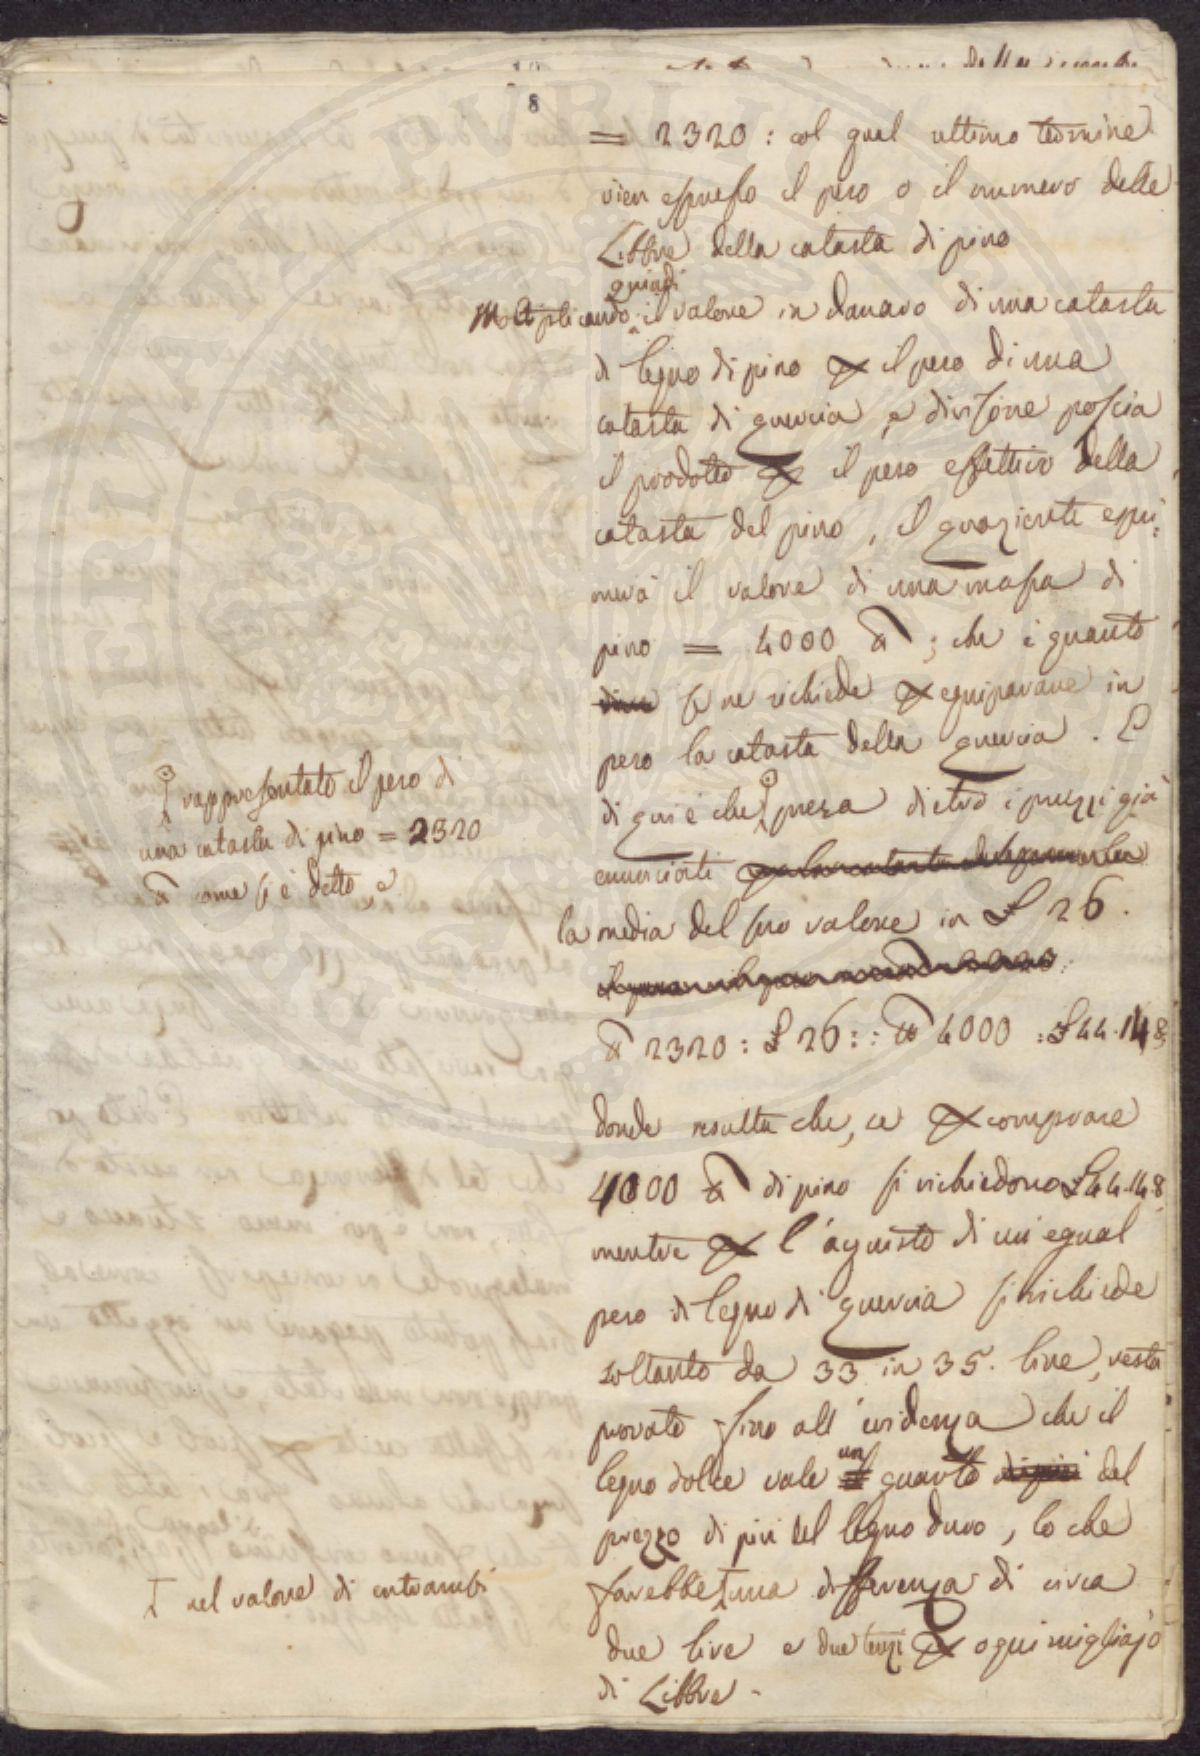 8
= 2320 : col qual ultimo termine
vien espresso il peso o il numero delle
Libbre della catasta di pino
quindi
Moltiplicando il valore in danaro di una catasta
di legno di pino per il peso di una
catasta di quercia, e divisone poscia
il prodotto per il peso effettivo della
catasta del pino, il quoziente espri:
merà il valore di una massa di
pino = 4000 ℔ ; che è quanto
se ne richiede per equiparare in
peso la catasta della quercia. E
di qui è che presa dietro i prezzi già
enunciati
la media del suo valore in £ 26.
℔ 2320 : £ 26 : : ℔ 4000 : £ 44.14.8
donde risulta che, se per comprare
4000 ℔ di pino si richiedono £ 44.14.8
mentre per l'aquisto di un egual
peso di legno di quercia si richiede
soltanto da 33 in 35. lire, resta
provato fino all'evidenza che il
legno dolce vale un quarto del
prezzo di più del legno duro, lo che
farebbe una differenza di circa
due lire e due terzi per ogni migliajo
di Libbre.
rappresentato il peso di
una catasta di pino = 2320
℔ come si è detto, e
nel valore di entrambi